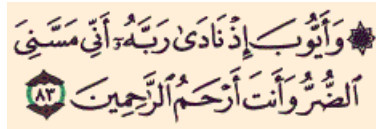 ۞ وَأَيُّوبَ إِذْ نَادَىٰ رَبَّهُۥٓ أَنِّي مَسَّنِيَ
ٱلضُّرُّ وَأَنتَ أَرْحَمُ ٱلرَّٰحِمِينَ ٨٣